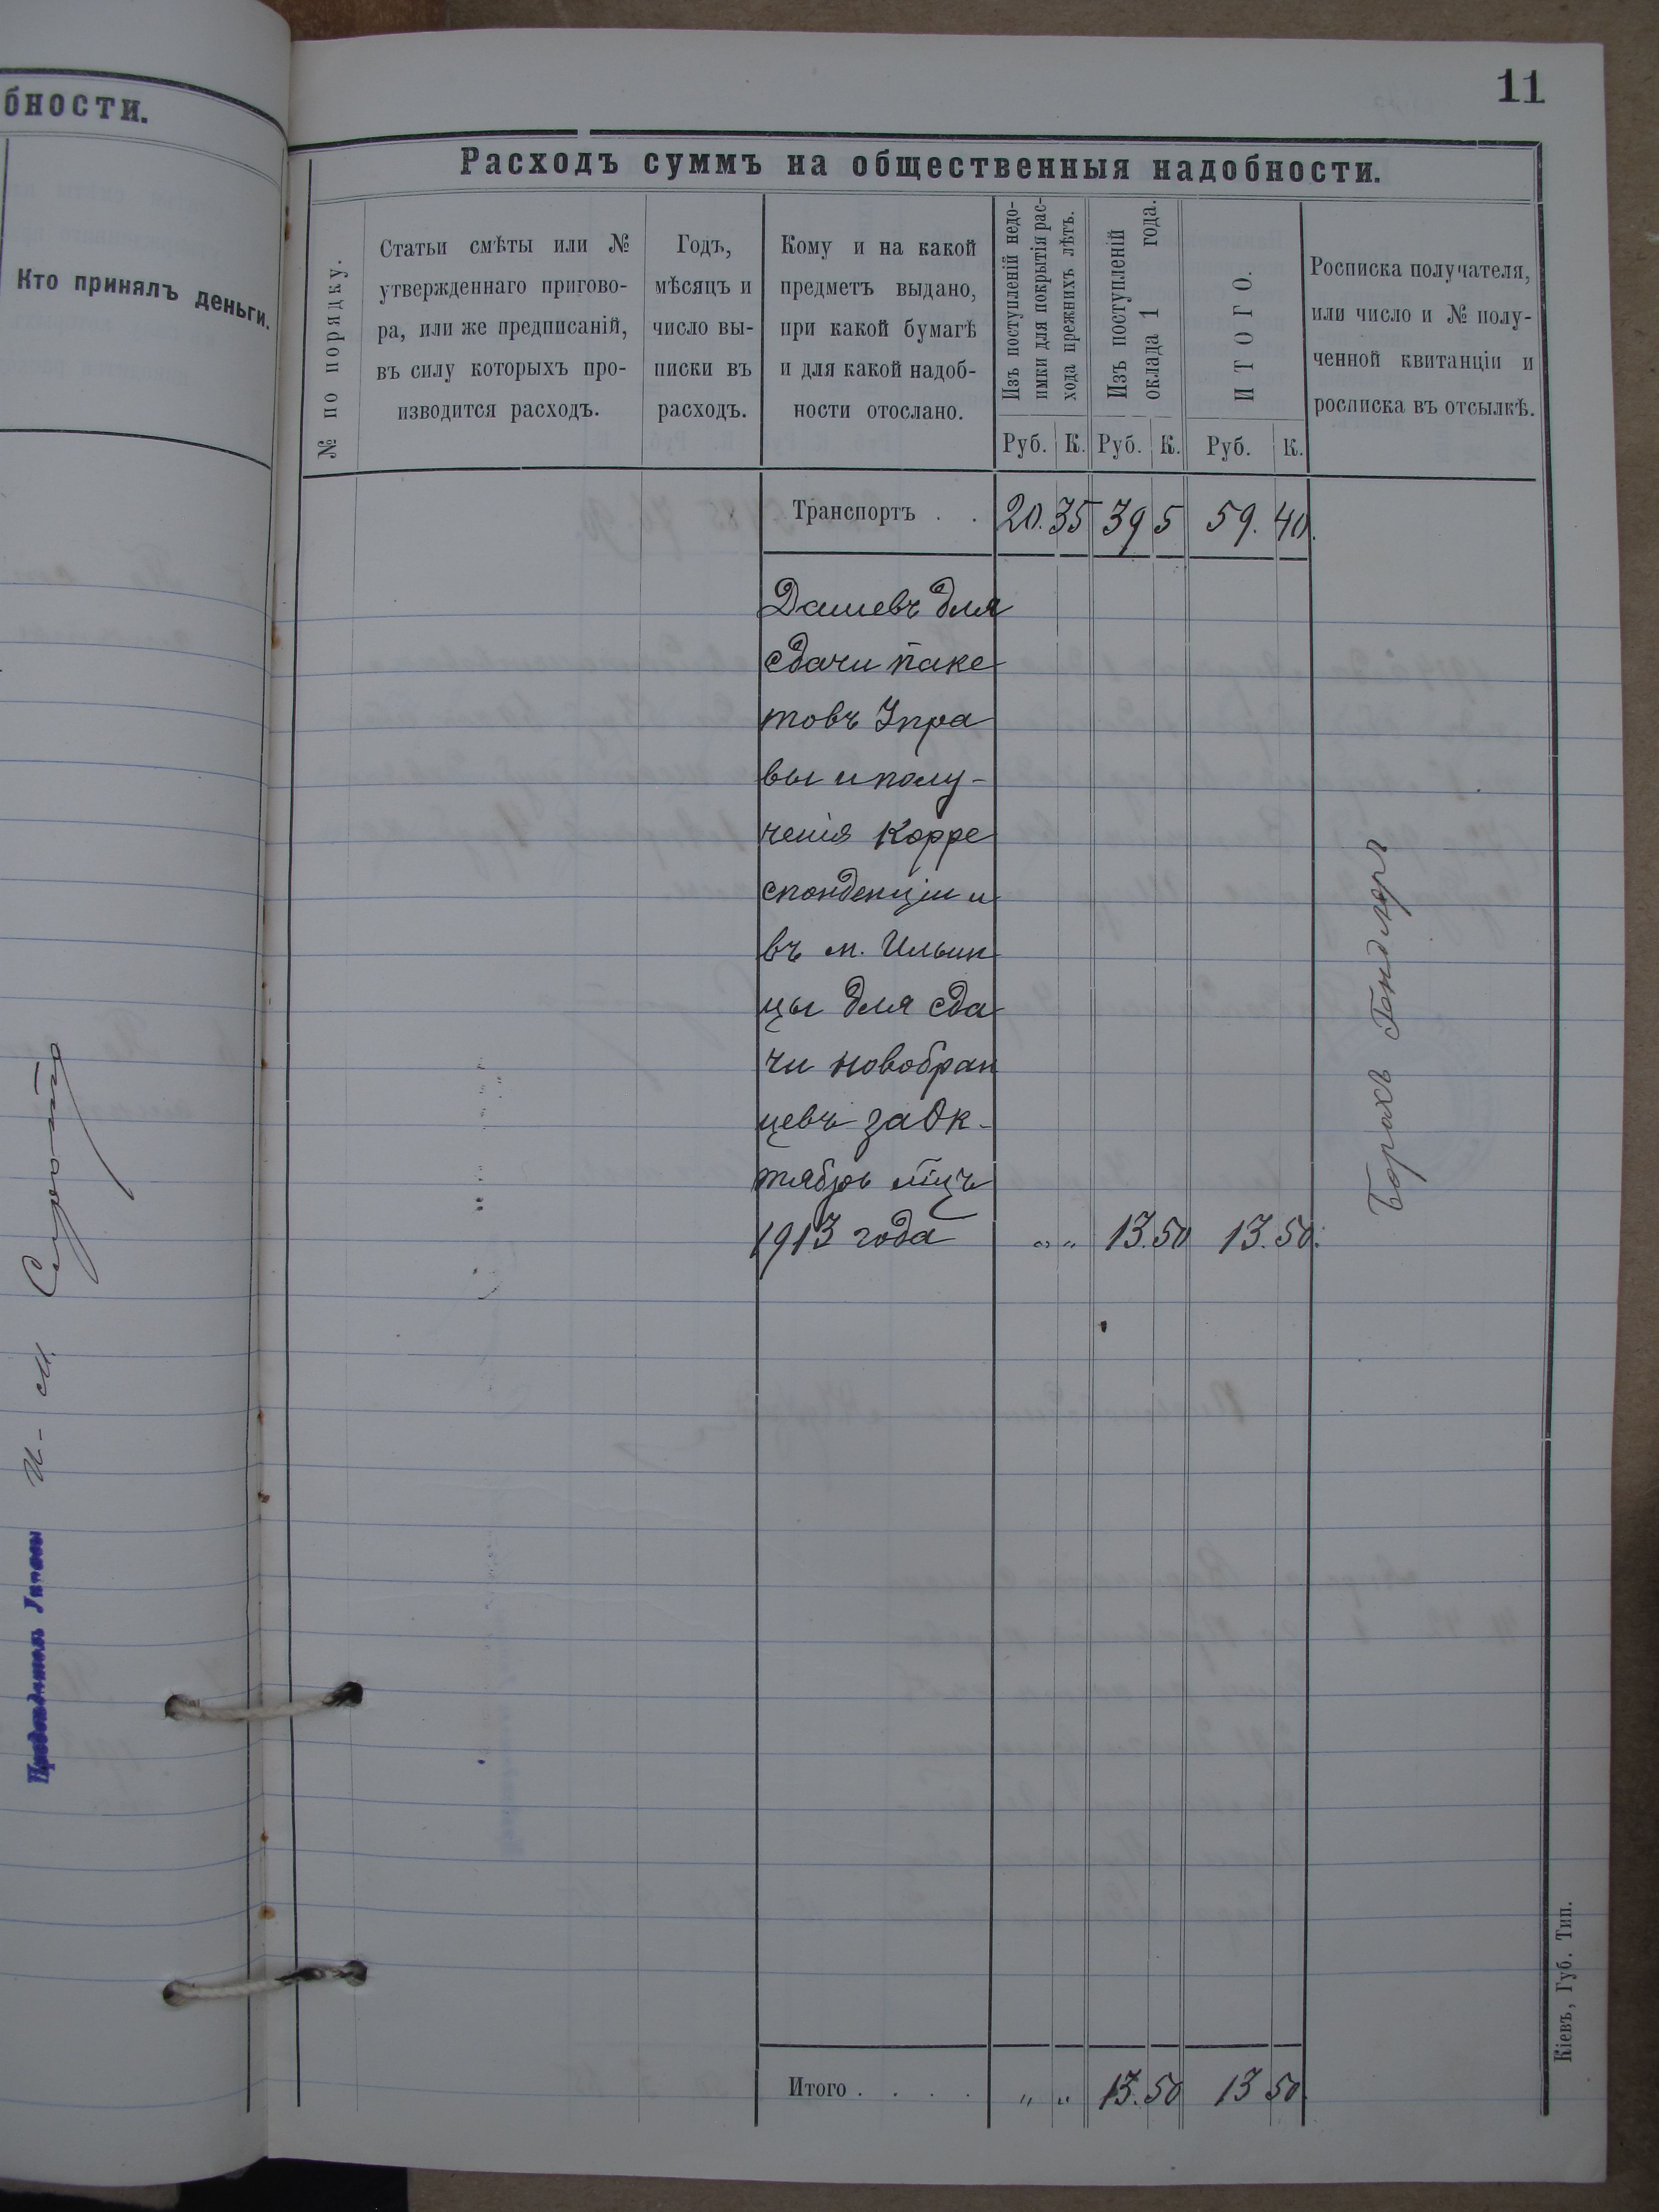 бности.
Кто принялъ деньги.
И-м.
Предсѣдатель Управы
11
Расходъ суммъ на общественныя надобности.
№ по порядку.
Статьи смѣты или №
утвержденнаго пригово-
ра, или же предписаній,
въ силу которыхъ про-
изводится расходъ.
Годъ,
мѣсяцъ и
число вы-
писки въ
расходъ.
Кому и на какой
предметъ выдано,
при какой бумагѣ
и для какой надоб-
ности отослано.
Изъ поступленій недо-
имки для покрытія рас-
хода прежнихъ лѣтъ.
Изъ поступленій
оклада 1 года.
ИТОГО.
Росписка получателя,
или число и № полу-
ченной квитанціи и
росписка въ отсылкѣ.
Руб. К. Руб. К. Руб. К.
Транспортъ . . 20. 35 39 5 59. 40.
Дашевъ для
сдачи паке
товъ Упра
вы и полу-
ченія Корре
спонденціи и
въ м. Ильин
цы для сда
чи новобран
цевъ за Ок-
тябрь мцъ
1913 года „ „ 13. 50 13. 50.
Борахъ Гендлеръ
Итого . . . . „ „ 13. 50 13 50.
Кіевъ, Губ. Тип.